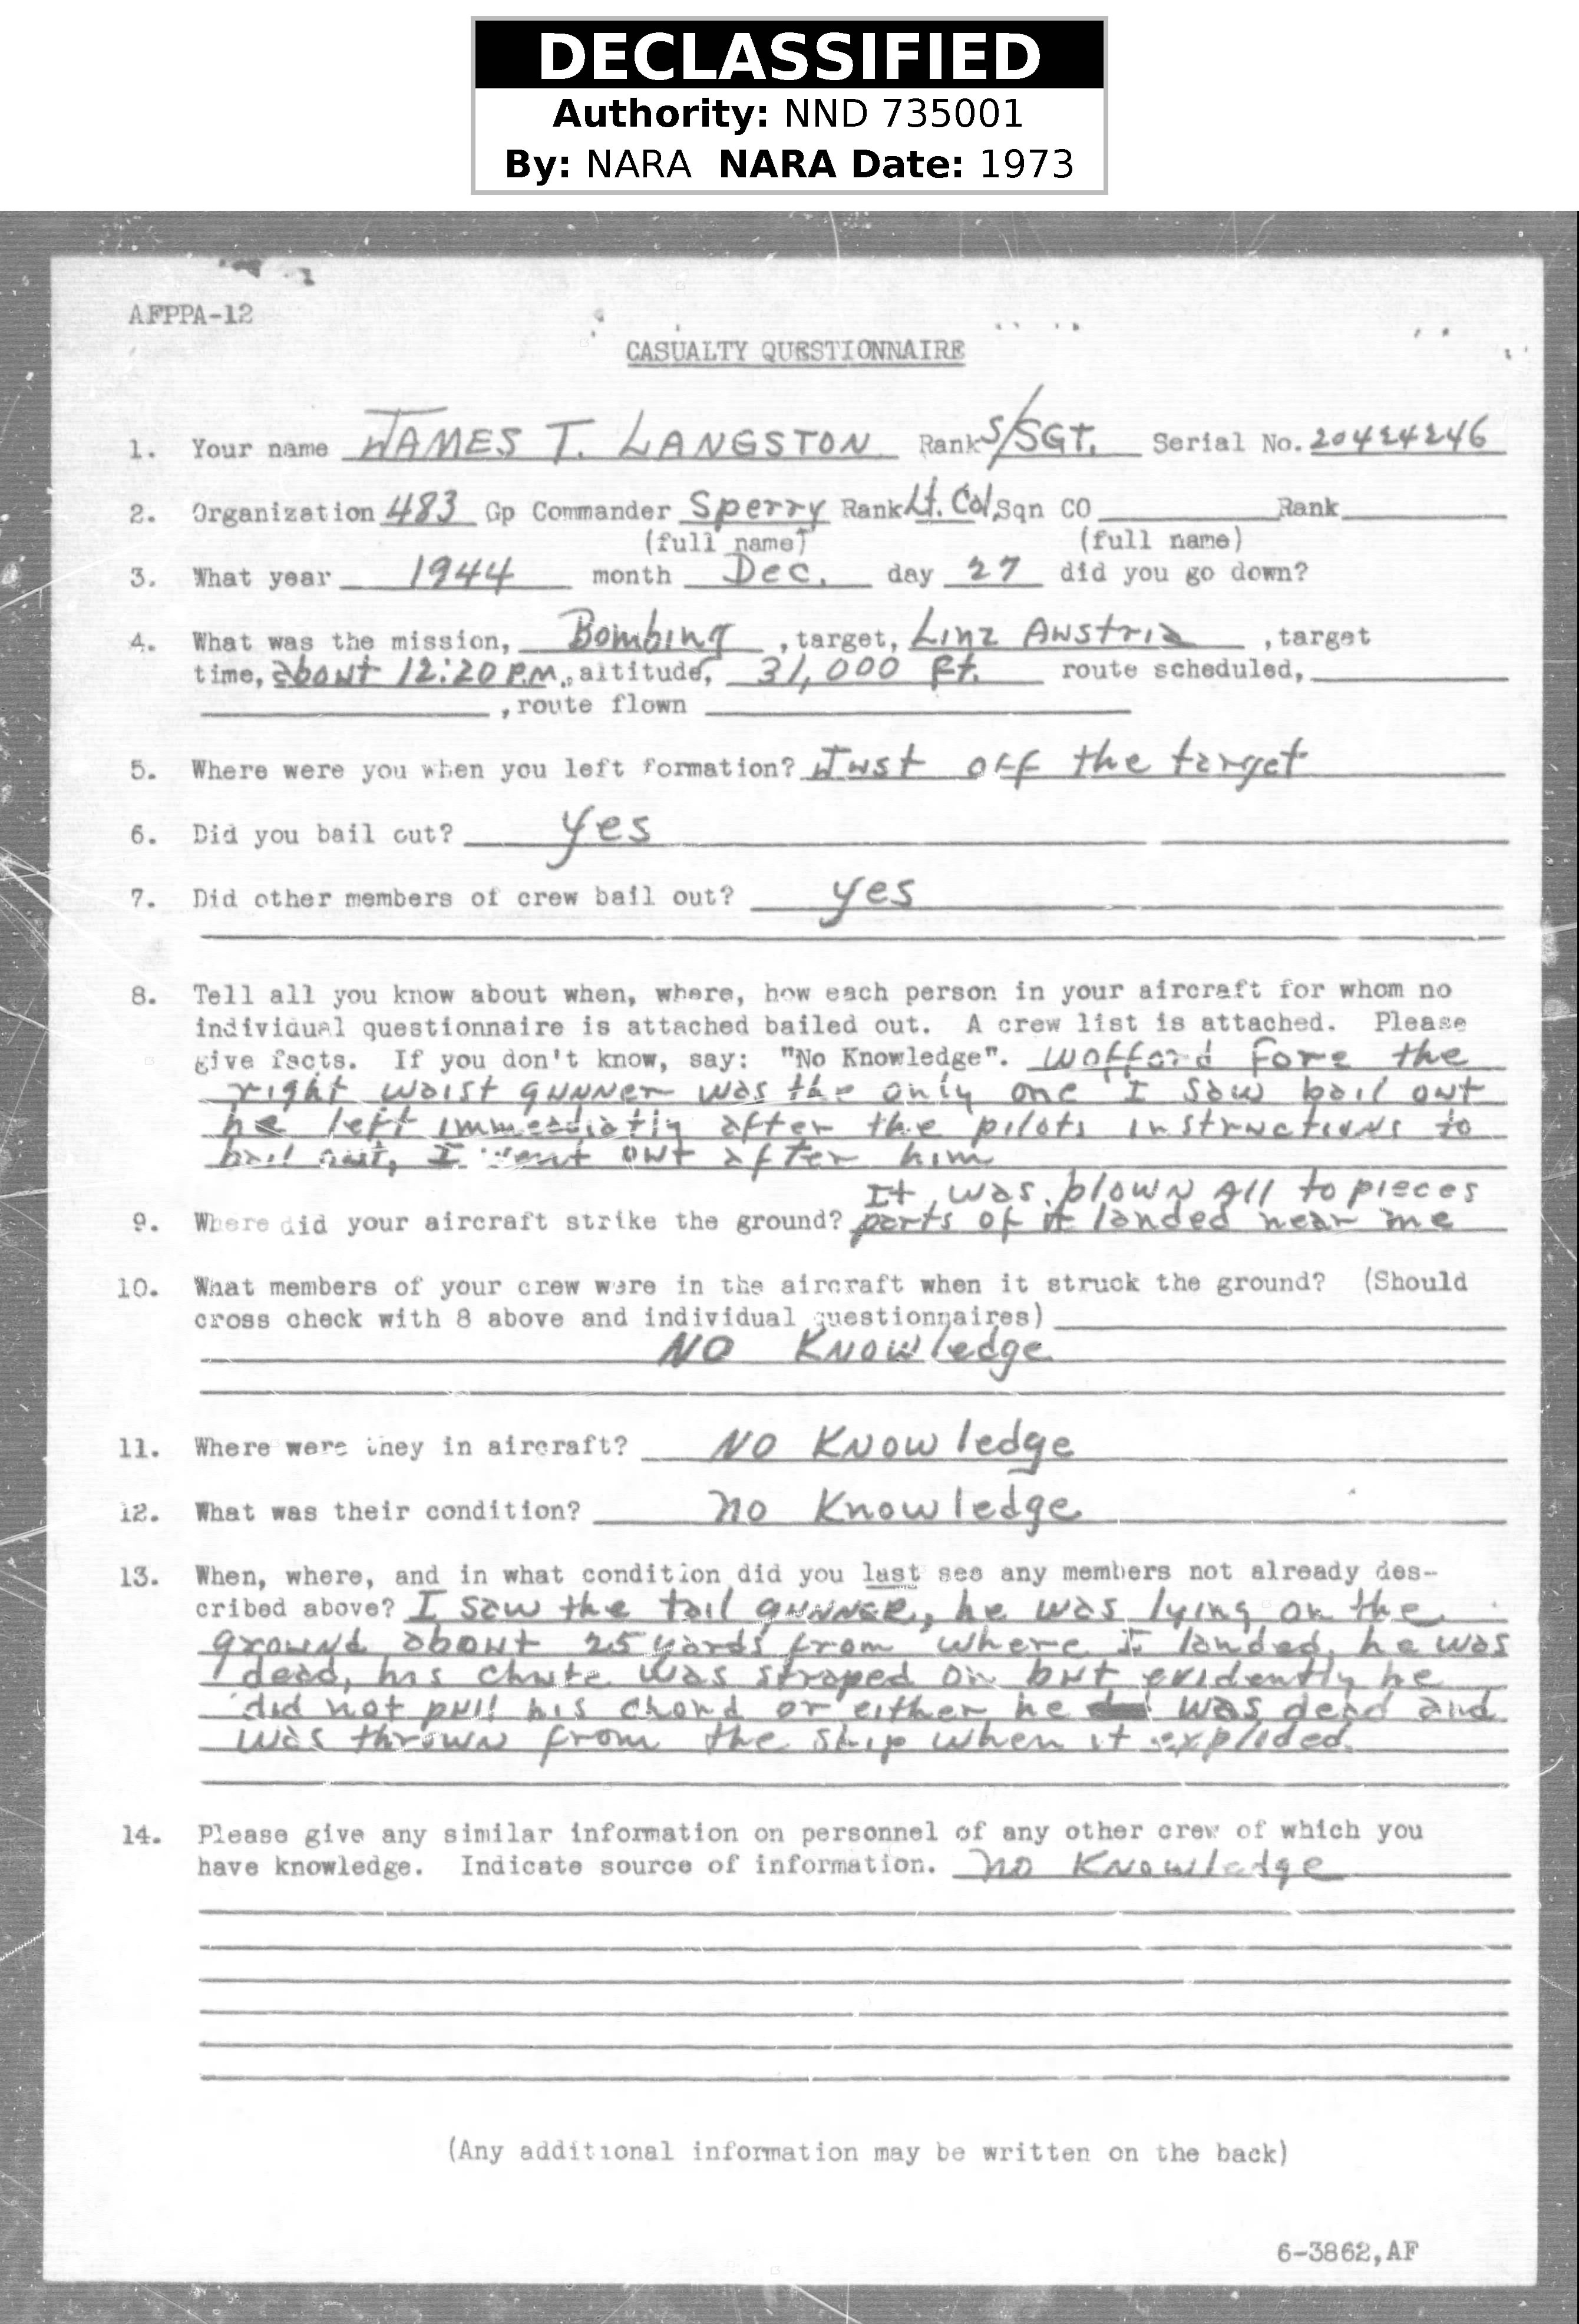 DECLASSIFIED
Authority: NND 735001
By: NARA NARA Date: 1973
AFPPA-12
CASUALTY QUESTIONNAIRE
1. Your name JAMES T. LANGSTON Rank S/SGT. Serial No. 20424246
2. Organization 483 Gp Commander Sperry Rank Lt. Col, Sqn CO Rank
(full name) (full name)
3. What year 1944 month Dec. day 27 did you go down?
4. What was the mission, Bombing , target, Linz Austria , target
time, about 12:20 P.M., altitude, 31,000 Ft. route scheduled,
, route flown
5. Where were you when you left formation? Just off the target
6. Did you bail out? yes
7. Did other members of crew bail out? yes
8. Tell all you know about when, where, how each person in your aircraft for whom no
individual questionnaire is attached bailed out. A crew list is attached. Please
give facts. If you don't know, say: "No Knowledge". Wofford Fore the
right waist gunner was the only one I saw bail out
he left immediatly after the pilots instructions to
bail out, I went out after him
It was blown all to pieces
9. Where did your aircraft strike the ground? parts of it landed near me
10. What members of your crew were in the aircraft when it struck the ground? (Should
cross check with 8 above and individual questionnaires)
NO Knowledge
11. Where were they in aircraft? NO Knowledge
12. What was their condition? no Knowledge
13. When, where, and in what condition did you last see any members not already des-
cribed above? I saw the tail gunner, he was lying on the
ground about 25 yards from where I landed, he was
dead, his chute was straped on but evidently he
did not pull his chord or either he was dead and
was thrown from the ship when it exploded.
14. Please give any similar information on personnel of any other crew of which you
have knowledge. Indicate source of information. no Knowledge
(Any additional information may be written on the back)
6-3862,AF